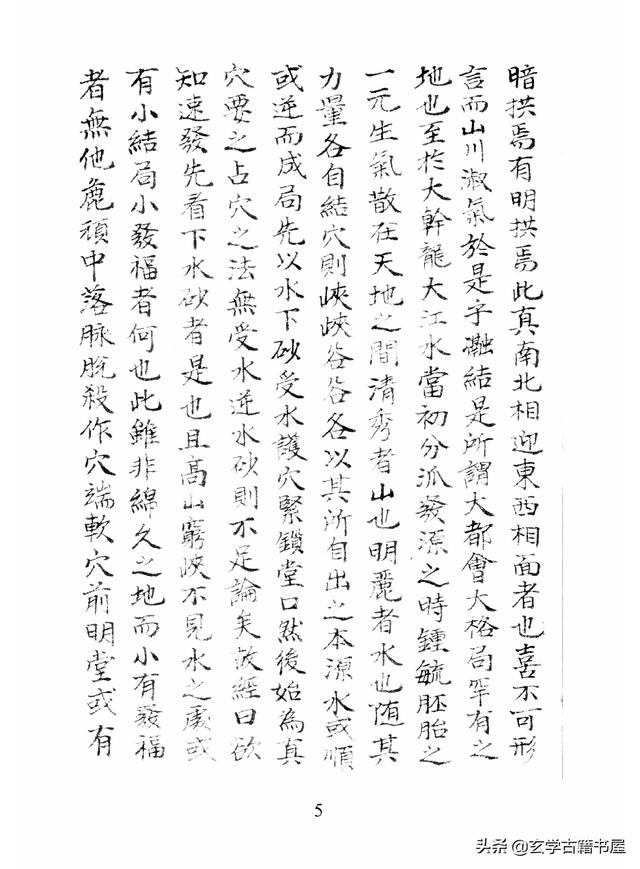 暗拱焉有明拱焉此真南北相迎東西相面者也喜不可形
言而山川淑氣於是乎瀜結是所謂大都會大格局罕有之
地也至於大幹龍大江水當初分派發源之時鍾毓胚胎之
一元生氣散在天地之間清秀者山也明麗者水也随其
力量各自結穴則峽峽谷谷各以其所自出之本源水或順
或逆而成局先以水下砂受水護穴緊鎖堂口然後始為真
穴要之占穴之法無受水逆水砂則不足論矣故經曰欲
知速發先看下水砂者是也且高山窮峽不見水之處或
有小結局小發福者何也此雖非綿久之地而小有發福
者無他麁頑中落脉脫殺作穴端軟穴前明堂或有
5
头条@玄学古籍书屋